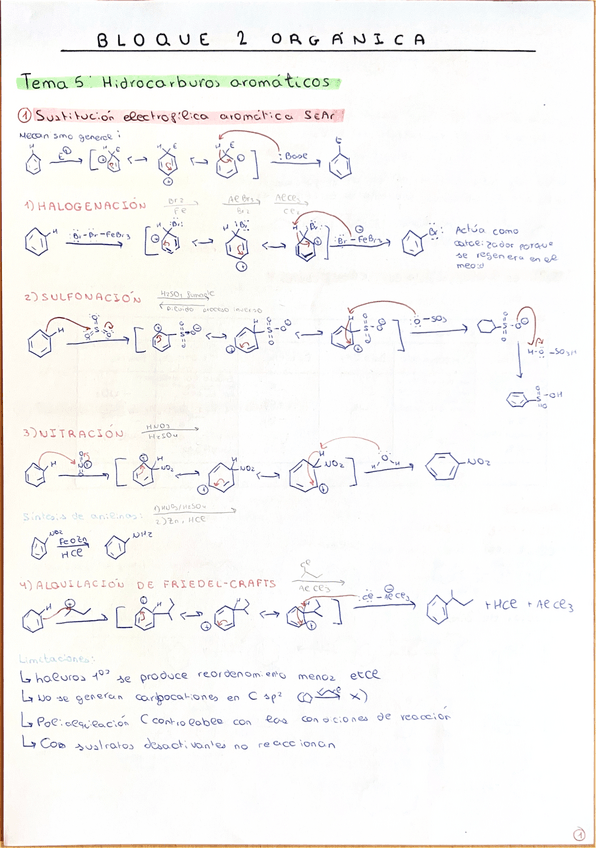 BLOQUE 2 ORGÁNICA
Tema 5: Hidrocarburos aromáticos
① Sustitución electrofílica aromática SEAr
Mecanismo general:
:Base
1) HALOGENACIÓN
Br2
Fe
AlBr3
Br2
AlCl3
Cl2
:Br-Br-FeBr3
:Br-FeBr3
Br:
Actúa como
catalizador porque
se regenera en el
2) SULFONACIÓN
H2SO4 fumante
proceso inverso
-SO3
H-O-SO3H
-OH
3) NITRACIÓN
HNO3
H2SO4
NO2
NO2
NO2
NO2
Síntesis de anilinas:
1) HNO3/H2SO4
2) Zn, HCl
NO2
Fe o Zn
HCl
NH2
4) ALQUILACIÓN DE FRIEDEL-CRAFTS
Cl
AlCl3
:Cl-AlCl3
+ HCl + AlCl3
Limitaciones:
↳ haluros 1os se produce reordenamiento menos etCl
↳ No se generan carbocationes en C sp2
↳ Polialquilación Ccontrolable con las condiciones de reacción
↳ Con sustratos desactivantes no reaccionan
①